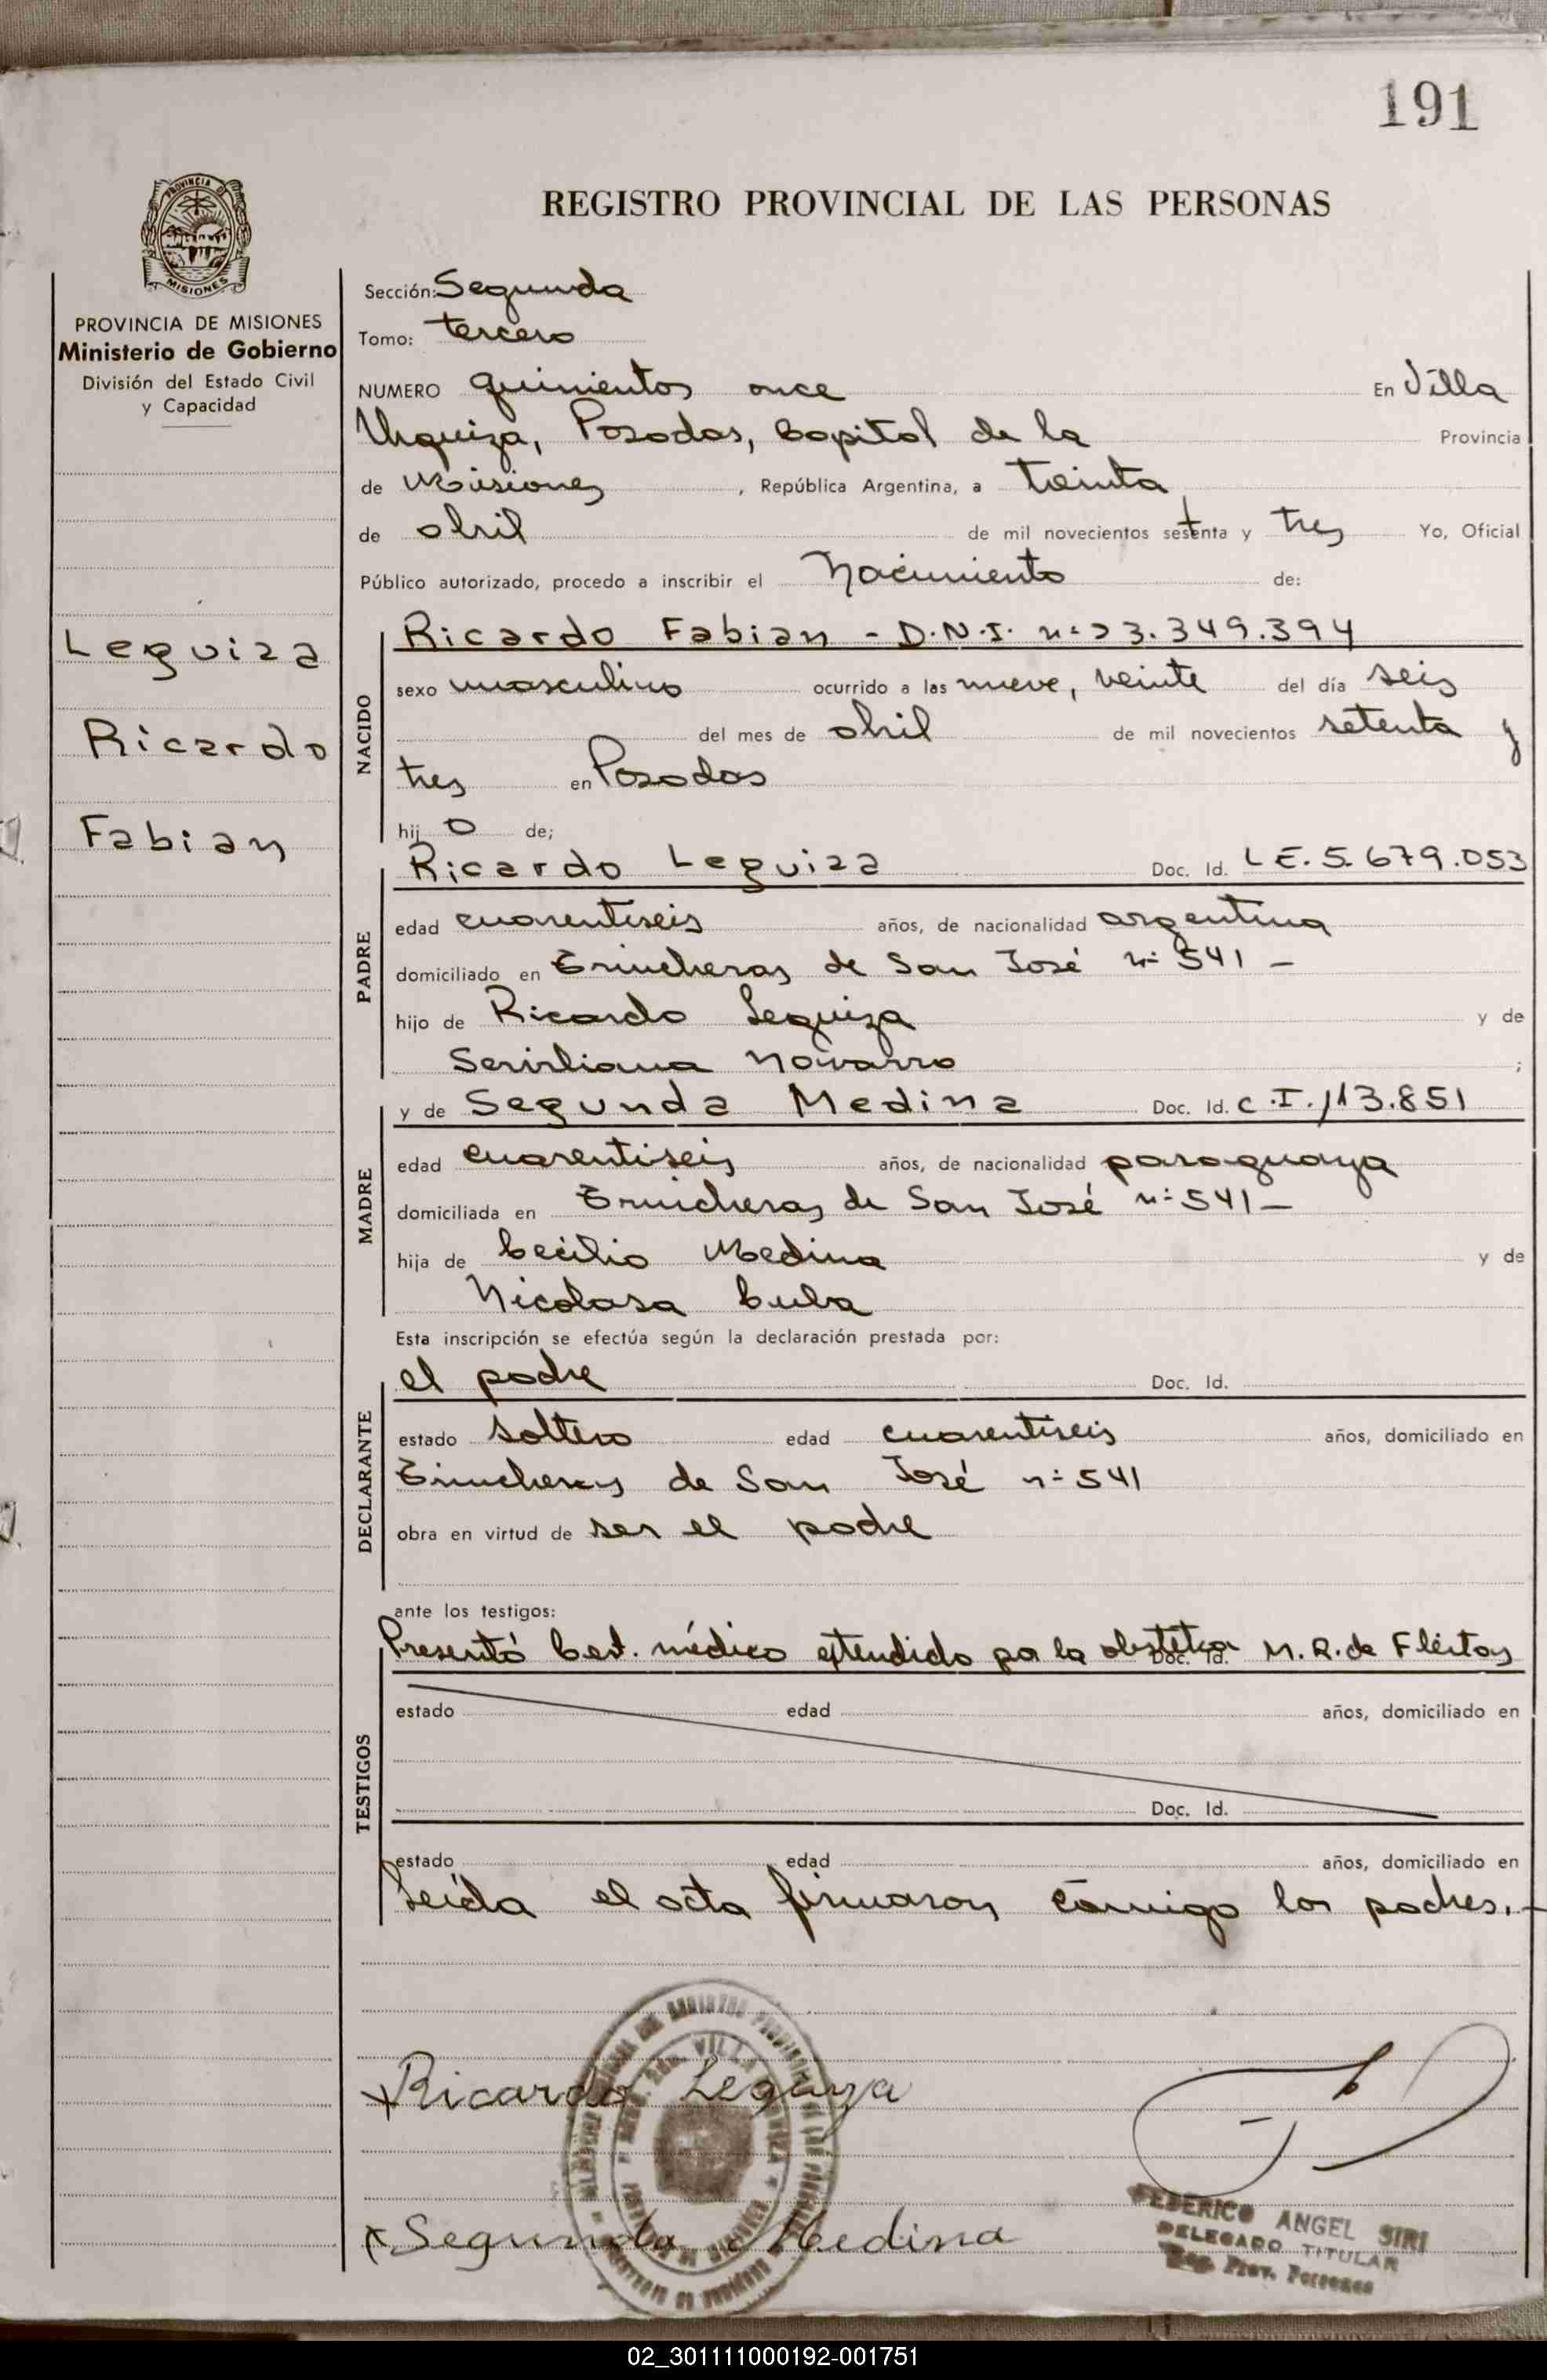 191
REGISTRO PROVINCIAL DE LAS PERSONAS
PROVINCIA DE MISIONES
PROVINCIA DE MISIONES
Ministerio de Gobierno
División del Estado Civil
y Capacidad
Leguiza
Ricardo
Fabian
Sección: Segunda
Tomo: tercero
NUMERO quinientos once En Villa
Urquiza, Posadas, Capital de la Provincia
de Misiones, República Argentina, a treinta
de abril de mil novecientos setenta y tres Yo, Oficial
Público autorizado, procedo a inscribir el Nacimiento de:
NACIDO
Ricardo Fabian - D.N.I. nº 23.349.394
sexo masculino ocurrido a las nueve, veinte del día seis
del mes de abril de mil novecientos setenta y
tres en Posadas
hijo de;
PADRE
Ricardo Leguiza Doc. Id. L E. 5.679.053
edad cuarentiseis años, de nacionalidad argentina
domiciliado en Trincheras de San José nº 541 -
hijo de Ricardo Leguiza y de
Navarro ;
MADRE
y de Segunda Medina Doc. Id. C.I. 113.851
edad cuarentiseis años, de nacionalidad paraguaya
domiciliada en Trincheras de San José nº 541 -
hija de Cecilio Medina y de
Nicolasa Cuba
Esta inscripción se efectúa según la declaración prestada por:
DECLARANTE
el padre Doc. Id.
estado soltero edad cuarentiseis años, domiciliado en
Trincheras de San José nº 541
obra en virtud de ser el padre
ante los testigos:
TESTIGOS
Presentó Cert. médico extendido por la obstetra Doc. Id. M. R. de Fleitas
estado edad años, domiciliado en
Doc. Id.
estado edad años, domiciliado en
Leída el acta firmaron conmigo los padres.-
Ricardo Leguiza
Segunda Medina
FEDERICO ANGEL SIRI
DELEGADO TITULAR
Reg. Prov. Personas
02_301111000192-001751